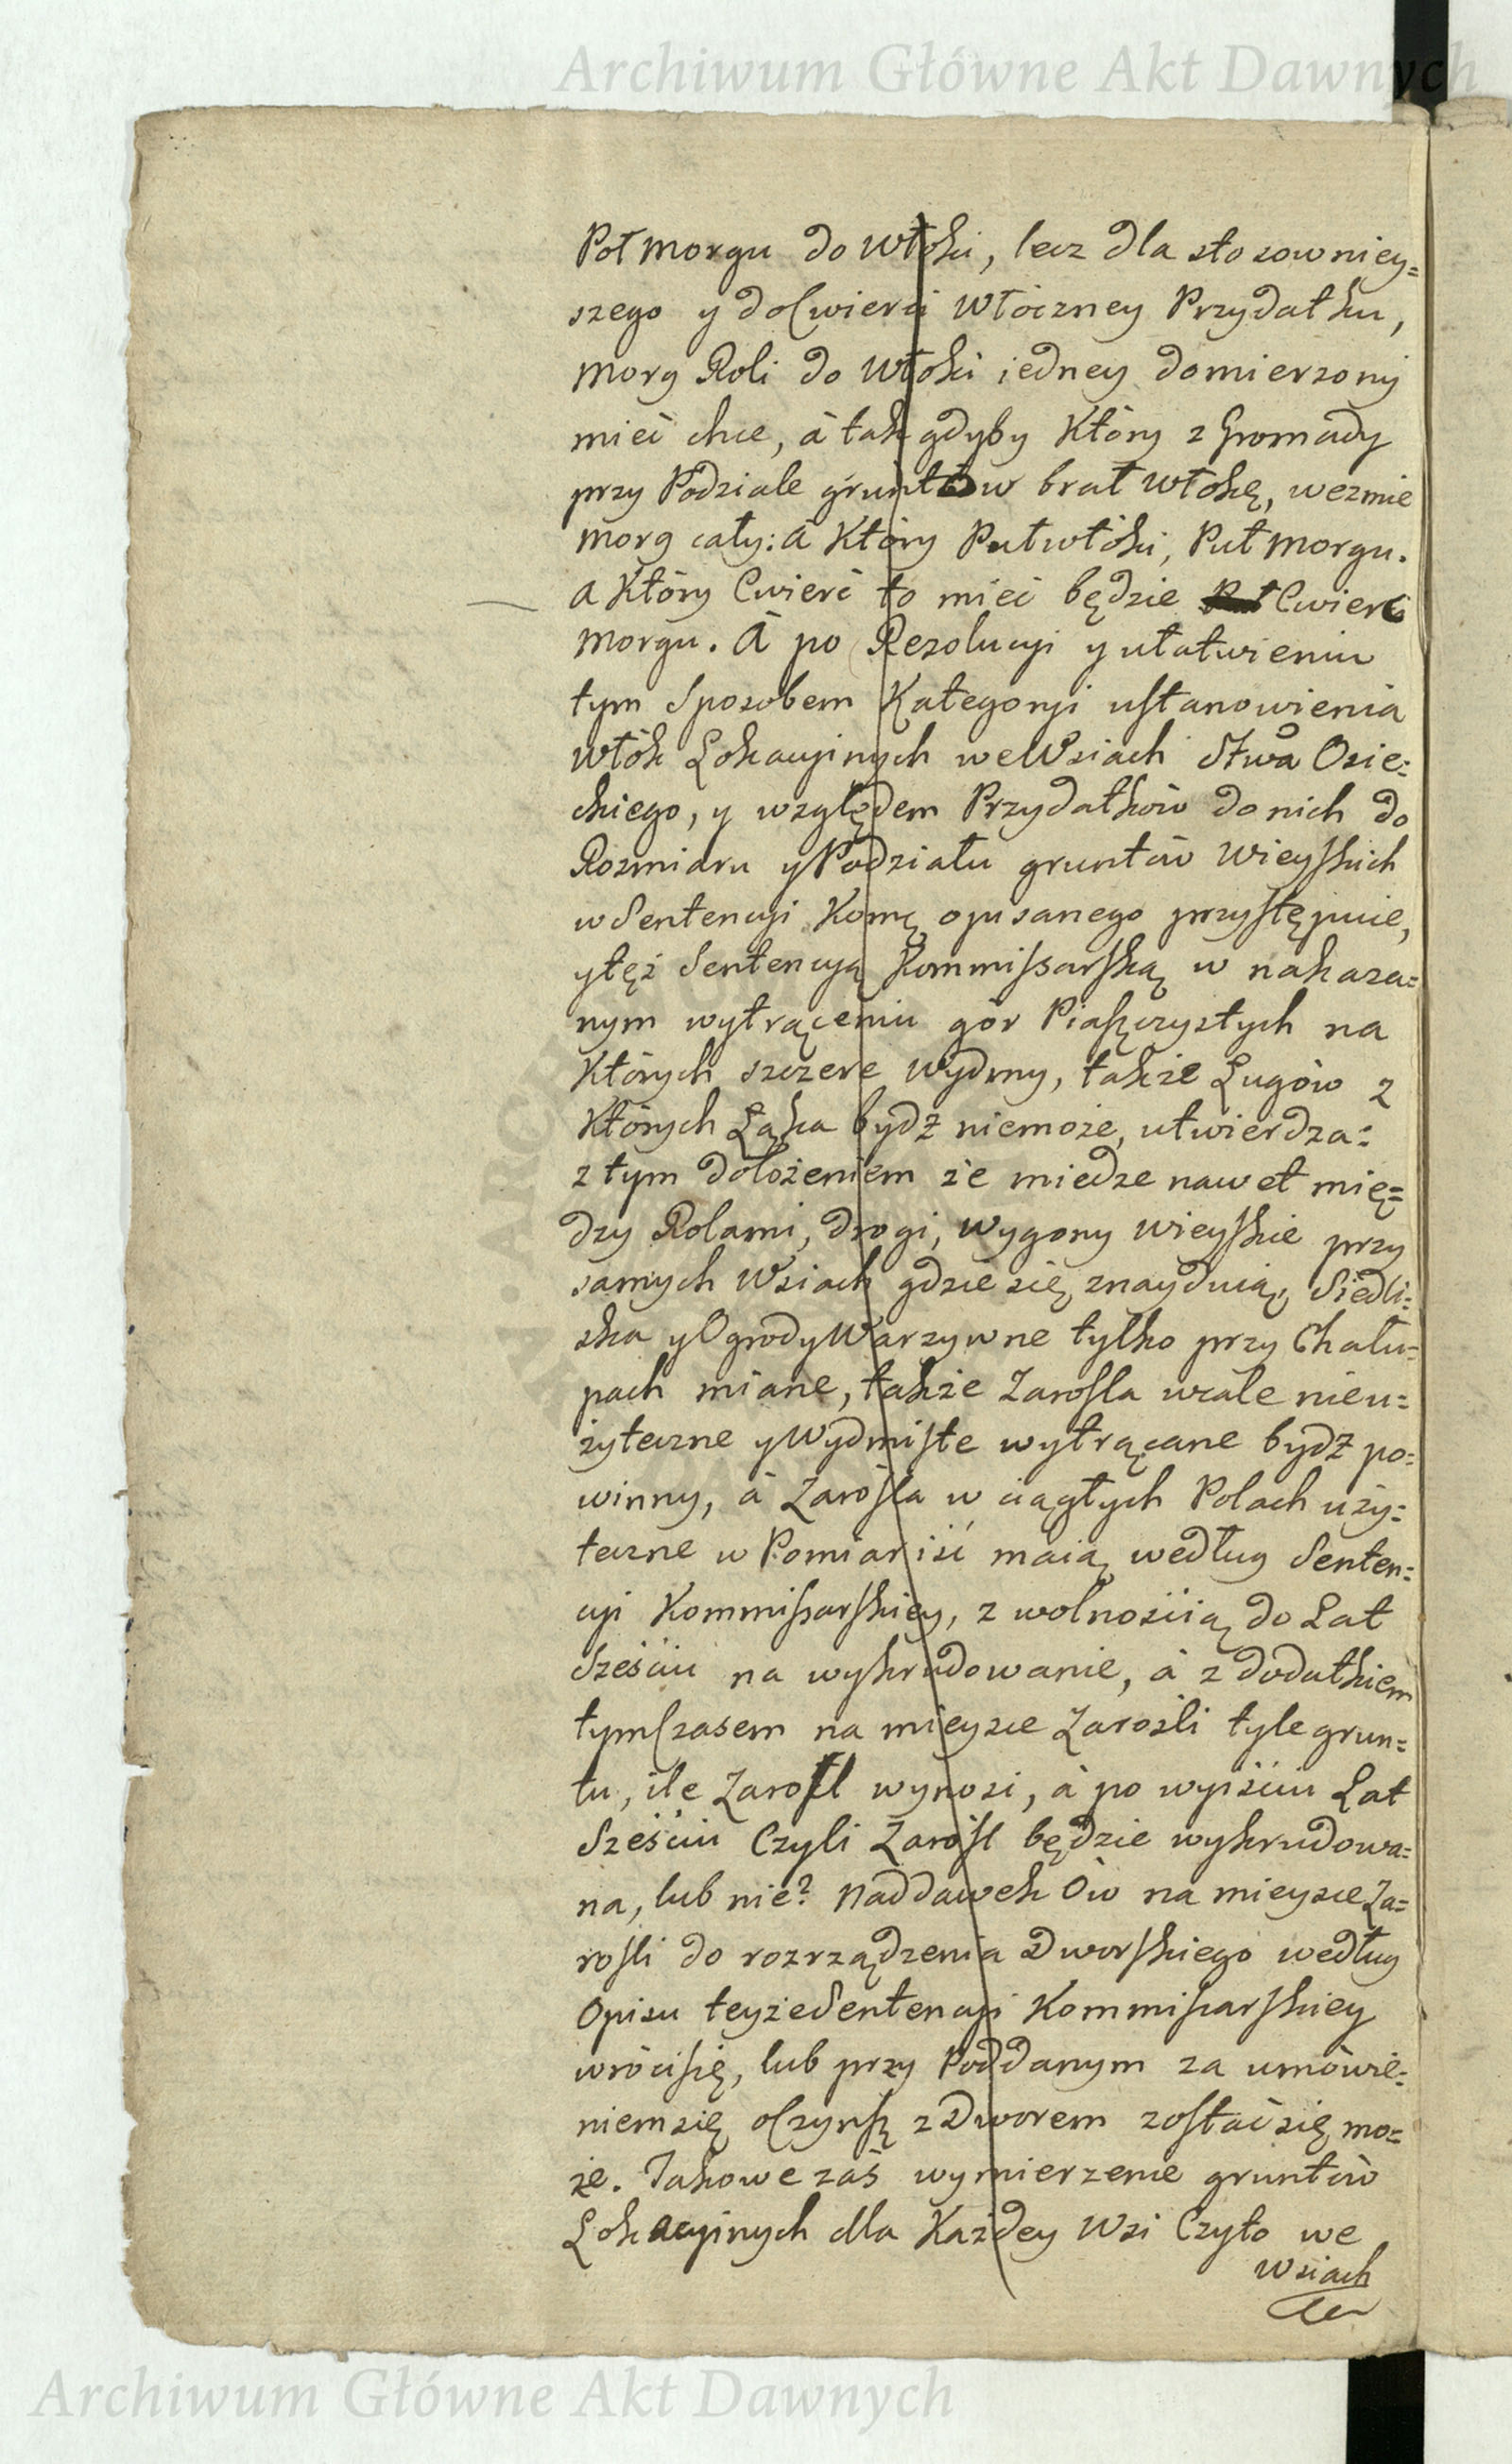 Archiwum Główne Akt Dawnych
Poł morgu do włoki, lecz dla stosowniey=
szego y do Cwierci Włóczney Przydatku,
morg Roli do Włoki iedney domierzony
mieć chce, à tak gdyby Który z Gromady
przy Podziale gruntów brał włokę, wezmie
morg cały: à Który Puł włóki, Puł morgu.
a Który Cwierć to mieć będzie Cwierć
morgu. À po Rezolucyi y ułatwieniu
tym Sposobem Kategoryi ustanowienia
włók Lokacyinych we Wsiach Stwa Osie=
ckiego, y względem Przydatków do nich do
Rozmiaru y Podziału gruntów Wieyskich
w Sentencyi Komę opisanego przystępuie,
y też Sentencyą Kommissarską w nakaza=
nym wytrąceniu gór Piasczystych na
Których szczere Wydmy, także Ługów z
Których Łąka bydź niemoże, utwierdza=
z tym dołożeniem że miedze nawet mię=
dzy Rolami, drogi, wygony wieyskie przy
samych Wsiach gdzie się znayduią, Siedli=
ska y Ogrody Warzywne tylko przy Chału=
pach miane, także Zarosla wcale nieu=
żyteczne y Wydmiste wytrącane bydź po=
winny, à Zarosla w ciągłych Polach uży=
teczne w Pomiar iść maią według Senten=
cyi Kommissarskiey, z wolnością do Lat
Sześciu na wykrudowanie, à z dodatkiem
tymCzasem na mieysce Zarośli tyle grun=
tu, ile Zarosl wynosi, à po wyiściu Lat
Sześciu Czyli Zarosl będzie wykrudowa=
na, lub nie? naddawek Ów na mieysce Za=
rosli do rozrządzenia Dworskiego według
Opisu teyże Sentencyi Kommissarskiey
wróci się, lub przy Poddanym za umówie=
niem się o Czynsz z Dworem zostać się mo=
że. Jakowe zaś wymierzenie gruntów
Lokacyinych dla Każdey Wsi Czyto we
Wsiach
Archiwum Główne Akt Dawnych